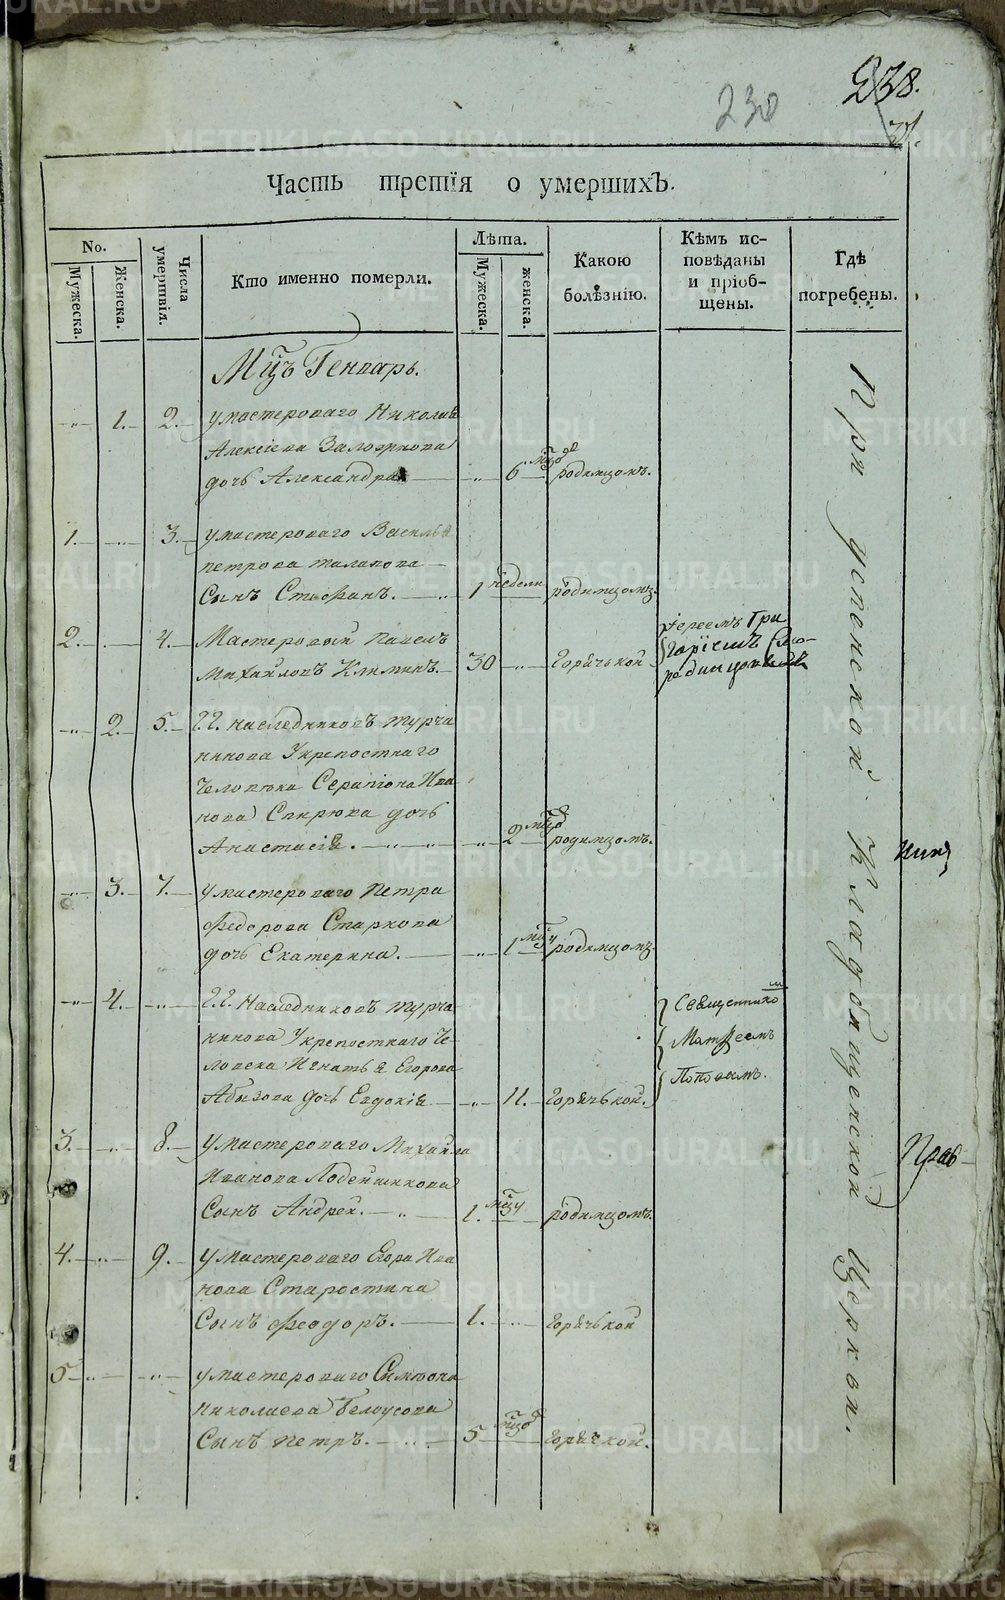 238.
230
Часть третія о умершихъ.
No.
Мужеска.
Женска.
Числа умертвія.
Кто именно померли.
Лѣта.
Мужеска.
женска.
Какою болѣзнію.
Кѣмъ ис-
повѣданы
и пріоб-
щены.
Гдѣ
погребены.
Мцъ Генварь.
1. 2. у мастероваго Николая
Алексіева
дочь Александра 6 мцовъ родимцомъ.
1. 3. у мастероваго Василья
петрова талапова
Сынъ Стефанъ. 1 недели родимцомъ.
2. 4. Мастеровый павелъ
михайловъ Климинъ. 30 Горячькой
іереемъ Гри
горіемъ Смо-
родинцовымъ
2. 5. Г.Г. наследниковъ турча
нинова Укрепостнаго
человека Серапіона Ива
нова дочь
Анастасія. 2 мцовъ родимцомъ.
3. 7. у мастероваго петра
федорова Старкова
дочь Екатерина. 1 мцу родимцомъ.
4. Г.Г. Наследниковъ турча
нинова Укрепостнаго че
ловека Игнатья Егорова
дочь Евдокія 11. Горячькой.
Священникомъ
Матфеемъ
Поповымъ.
3. 8. у мастероваго Михайла
Иванова
Сынъ Андрей. 1. мцу родимцомъ.
4. 9. у мастероваго Егора Ива
нова Старостина
Сынъ Феодоръ. 1. Горячькой
5 у мастероваго Симеона
николаева Белоусова
Сынъ петръ. 5 мцовъ Горячкой.
При успенской Кладбищенской Церкви.